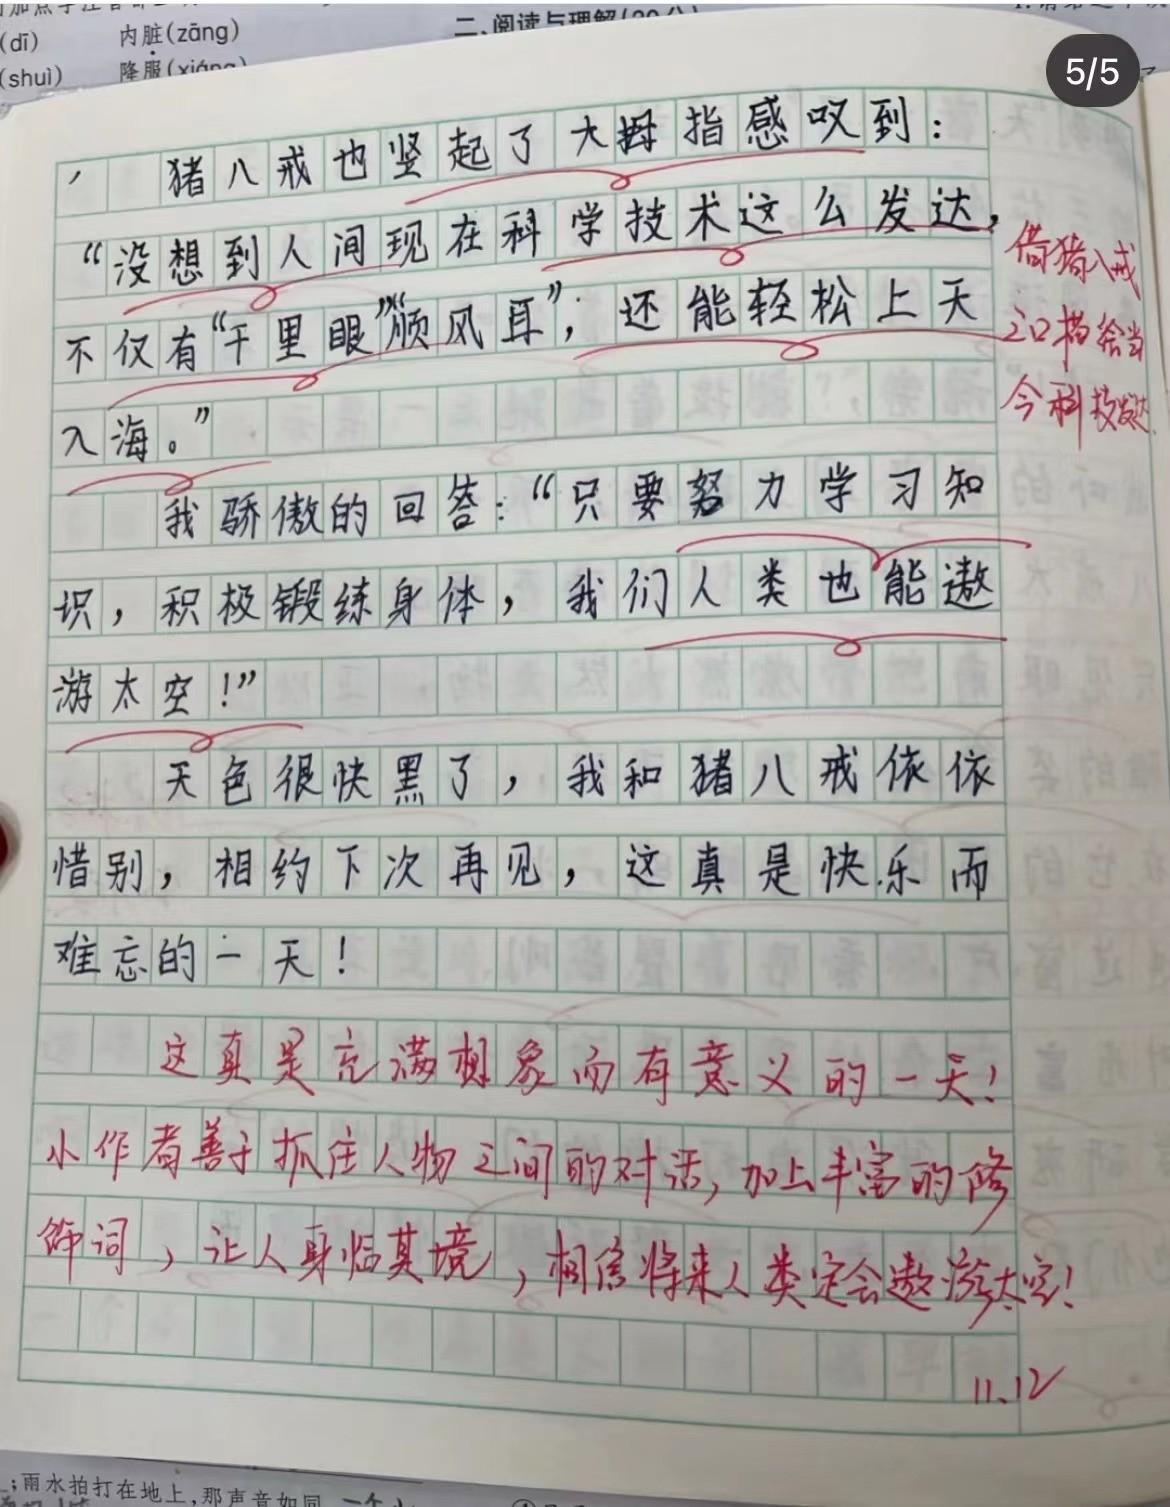 (dī) 内脏(zāng)
(shuì) 降服(xiáng)
二、阅读与理解(20分)
5/5
猪八戒也竖起了大拇指感叹到：
“没想到人间现在科学技术这么发达，
不仅有“千里眼”“顺风耳”，还能轻松上天
入海。”
我骄傲的回答：“只要努力学习知
识，积极锻练身体，我们人类也能遨
游太空！”
天色很快黑了，我和猪八戒依依
惜别，相约下次再见，这真是快乐而
难忘的一天！
借猪八戒
之口描绘当
今科技发达
这真是充满想象而有意义的一天！
小作者善于抓住人物之间的对话，加上丰富的修
辞词，让人身临其境，相信将来人类定会遨游太空！
11.12
；雨水拍打在地上，那声音如同